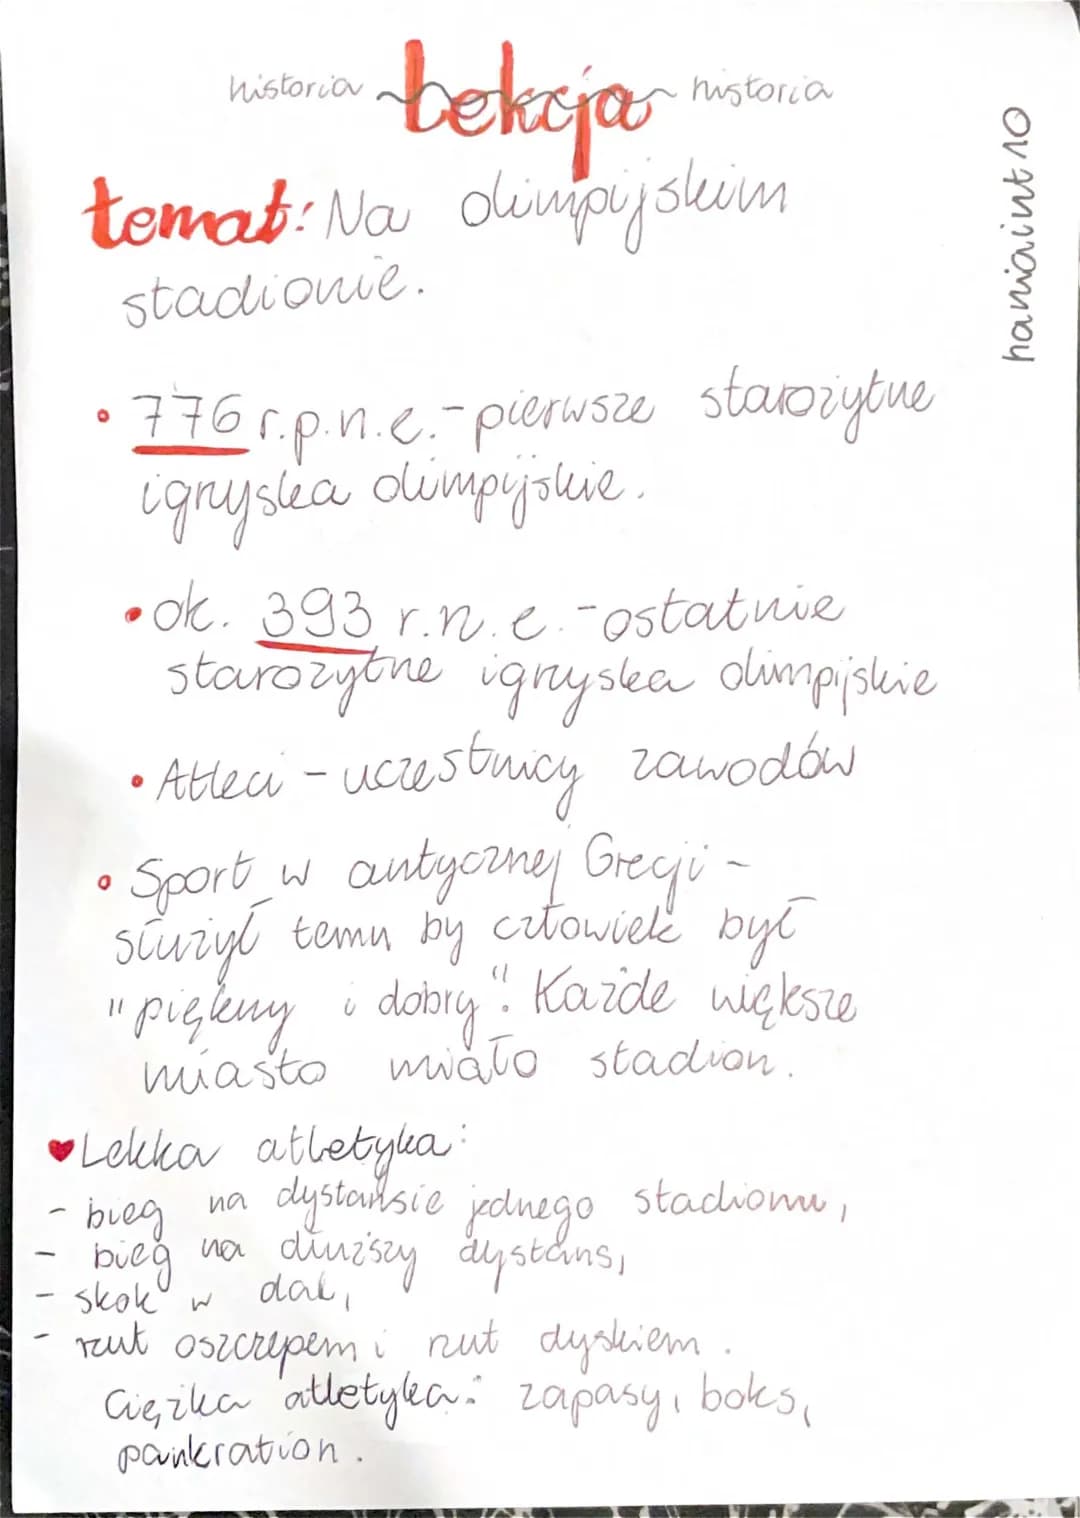 historia Lekcja historia
temat: Na olimpijskim
stadionie.
• 776 r.p.n.e. - pierwsze starożytne
igryska olimpijskie.
• ok. 393 r.n.e. - ostatnie
starożytne igryska olimpijskie
• Atleci - uczestnicy zawodów
• Sport w antycznej Grecji -
służył temu by człowiek był
"piękny i dobry". Każde większe
miasto miało stadion.
♥ Lekka atletyka:
- bieg na dystansie jednego stadionu,
- bieg na dłuższy dystans,
- skok w dal,
- rzut oszczepem i rzut dyskiem.
Ciężka atletyka: zapasy, boks,
pankration.
haniaint10